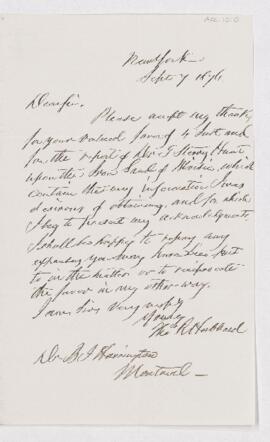 New York
Sept 7 1876
Dear Sir,
Please accept my thanks
for your valued favor of 4 Inst and
for the report of Dr T Sterry Hunt
upon the Iron Sand of Moisic, which
contain the very information I was
desirous of obtaining, and for which
I beg to present my acknowledgments.
I shall be happy to repay any
expenses you may have been put
to in the matter or to reciprocate
the favor in any other way.
I am, Sir, Very resply
Yours
Thos R Hubbard
Dr B J Harrington
Montreal